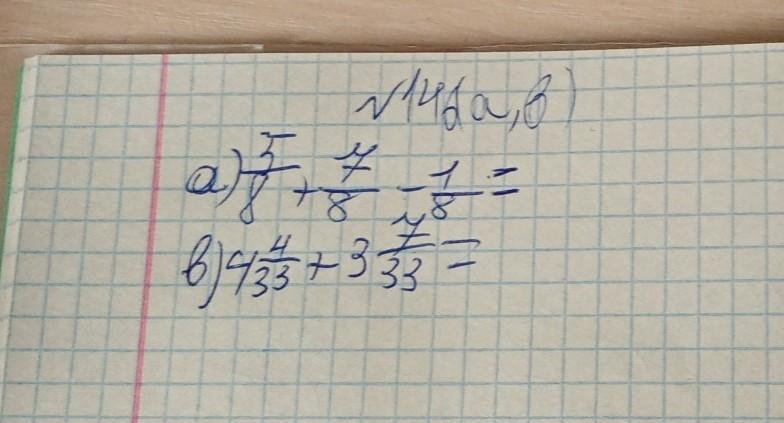 № 142(а,в)
а) 5/8 + 7/8 - 1/8 =
в) 4 4/33 + 3 7/33 =